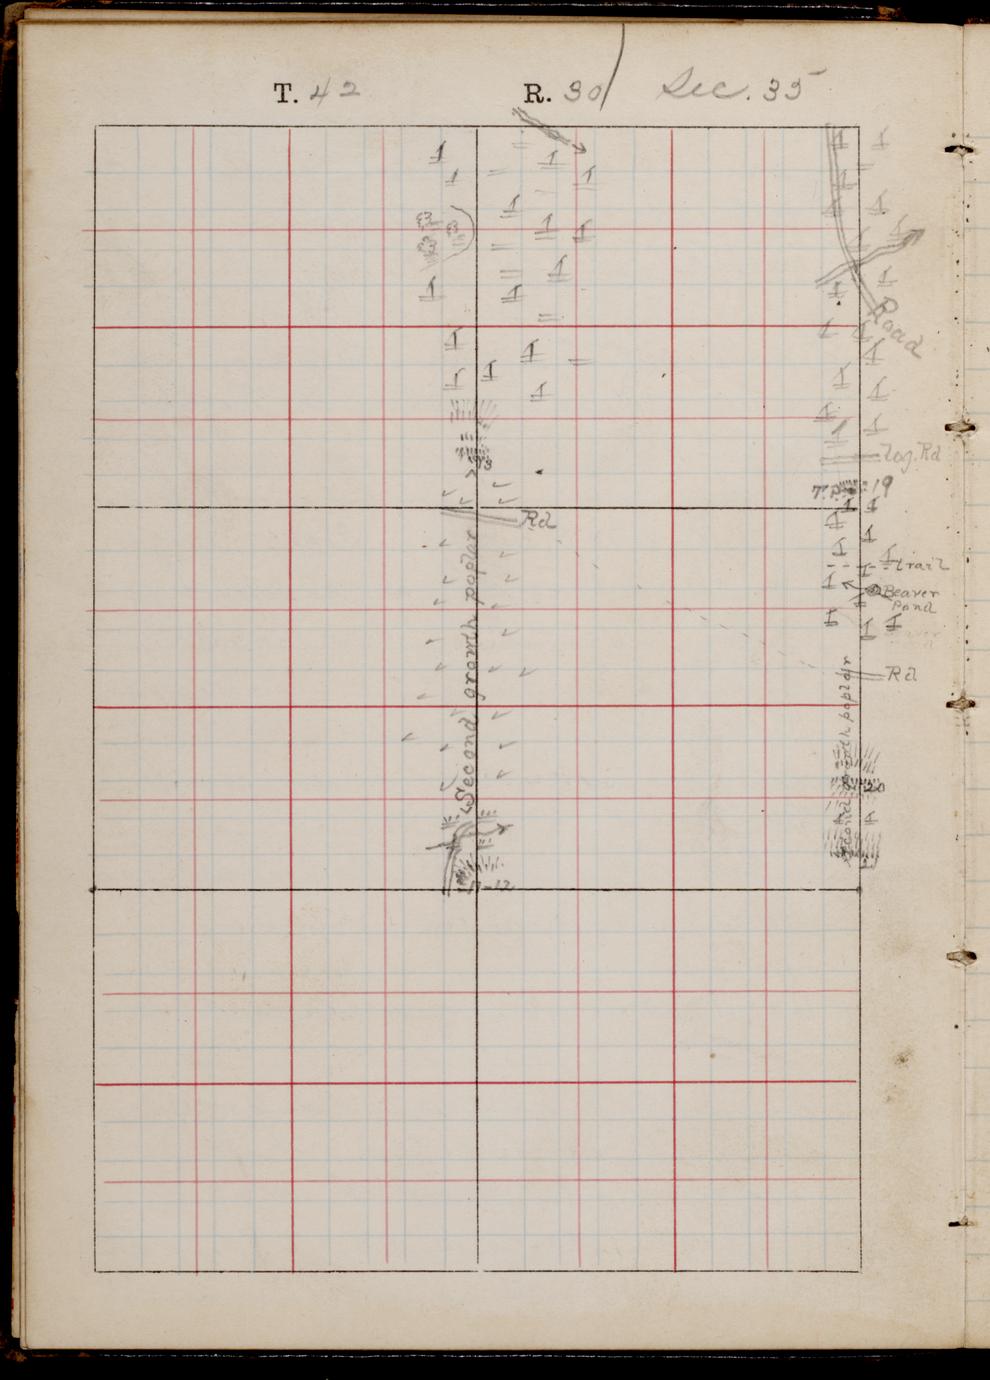 T. 42 R. 30 Sec. 35
Road
Log. Rd
T.P. 19
Rd
trail
Beaver
Pond
Rd
Second growth poplar
Second growth poplar
20
11-12